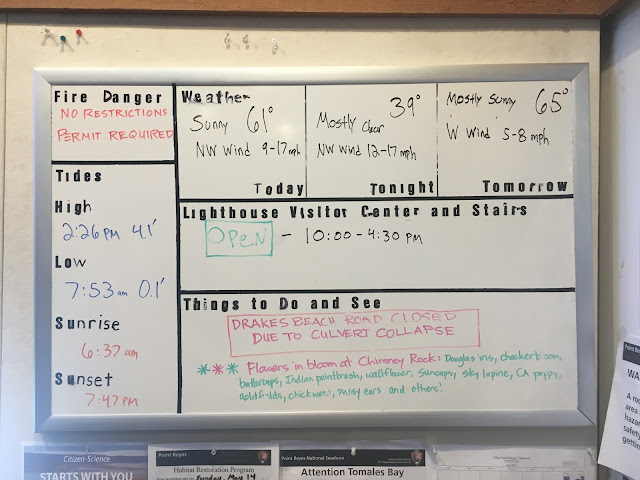 Fire Danger
NO RESTRICTIONS
PERMIT REQUIRED
Tides
High
2:26 PM 4.1'
Low
7:53 am 0.1'
Sunrise
6:37 am
Sunset
7:47 PM
Weather
Sunny 61°
NW Wind 9-17 mph
Today
39°
Mostly Clear
NW Wind 12-17 mph
Tonight
Mostly Sunny 65°
W Wind 5-8 mph
Tomorrow
Lighthouse Visitor Center and Stairs
OPEN - 10:00-4:30 PM
Things to Do and See
DRAKES BEACH ROAD CLOSED
DUE TO CULVERT COLLAPSE
*** Flowers in bloom at Chimney Rock: Douglas iris, checkerbloom,
buttercups, Indian paintbrush, wallflower, suncups, sky lupine, CA poppy,
goldfields, chickweed, pussy ears and others!
Citizen-Science
STARTS WITH YOU
Point Reyes
Habitat Restoration Program
Sunday, May 14
Point Reyes National Seashore
Attention Tomales Bay
Point Reyes
WA
A ro
area
haza
safety
getti